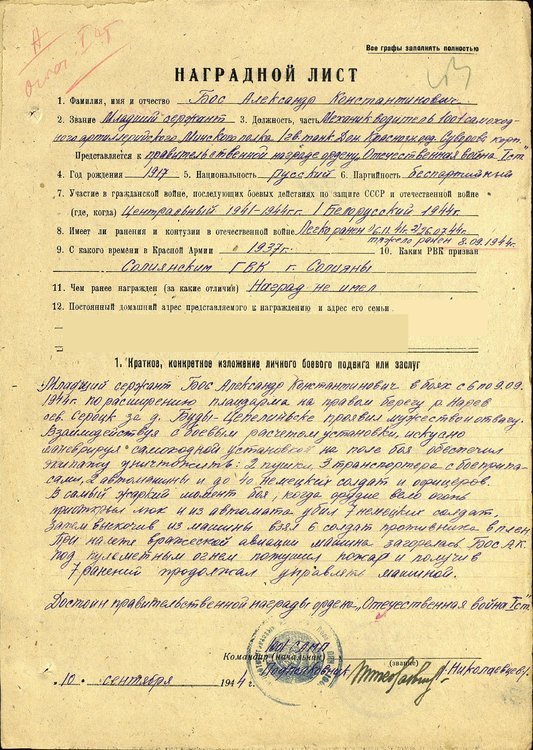 Все графы заполнять полностью
НАГРАДНОЙ ЛИСТ
1. Фамилия, имя и отчество Бос Александр Константинович
2. Звание Младший сержант 3. Должность, часть Механик водитель 1001 самоход-
ного артиллерийского Минского полка 1 гв. танк. Дон. Краснознам. Суворова корп.
Представляется к правительственной награде ордену „Отечественная война I ст"
4. Год рождения 1917 5. Национальность Русский 6. Партийность Беспартийный
7. Участие в гражданской войне, последующих боевых действиях по защите СССР и отечественной войне
(где, когда) Центральный 1941-1944гг. 1 Белорусский 1944г.
8. Имеет ли ранения и контузии в отечественной войне Легко ранен 26.07.44г.
тяжело ранен 8.09.1944г.
9. С какого времени в Красной Армии с 1937г. 10. Каким РВК призван
Солиянским ГВК г. Солияны
11. Чем ранее награжден (за какие отличия) Наград не имел
12. Постоянный домашний адрес представляемого к награждению и адрес его семьи
1. Кратко, конкретное изложение личного боевого подвига или заслуг
Младший сержант Бос Александр Константинович в боях с 6 по 9.09.
1944г. по расширению плацдарма на правом берегу р. Нарев
сев. Сероцк за д. Буды-Цепелиньске проявил мужество и отвагу.
Взаимодействуя с боевым расчетом установки, искусно
маневрируя самоходной установкой на поле боя обеспечил
экипажу уничтожить: 2 пушки, 3 транспортера с боеприпа-
сами, 2 автомашины и до 40 немецких солдат и офицеров.
В самый жаркий момент боя, когда орудие вело огонь
приоткрыл люк и из автомата убил 7 немецких солдат,
затем выскочив из машины взял 6 солдат противника в плен.
При налете вражеской авиации машина загорелась. Бос А.К.
под пулеметным огнем потушил пожар и получив
7 ранений продолжал управлять машиной.
Достоин правительственной награды ордена „Отечественная война I ст"
Командир (начальник) 1001 САМП
Подполковник (звание) /Николаевцев/
10 сентября 1944 г.